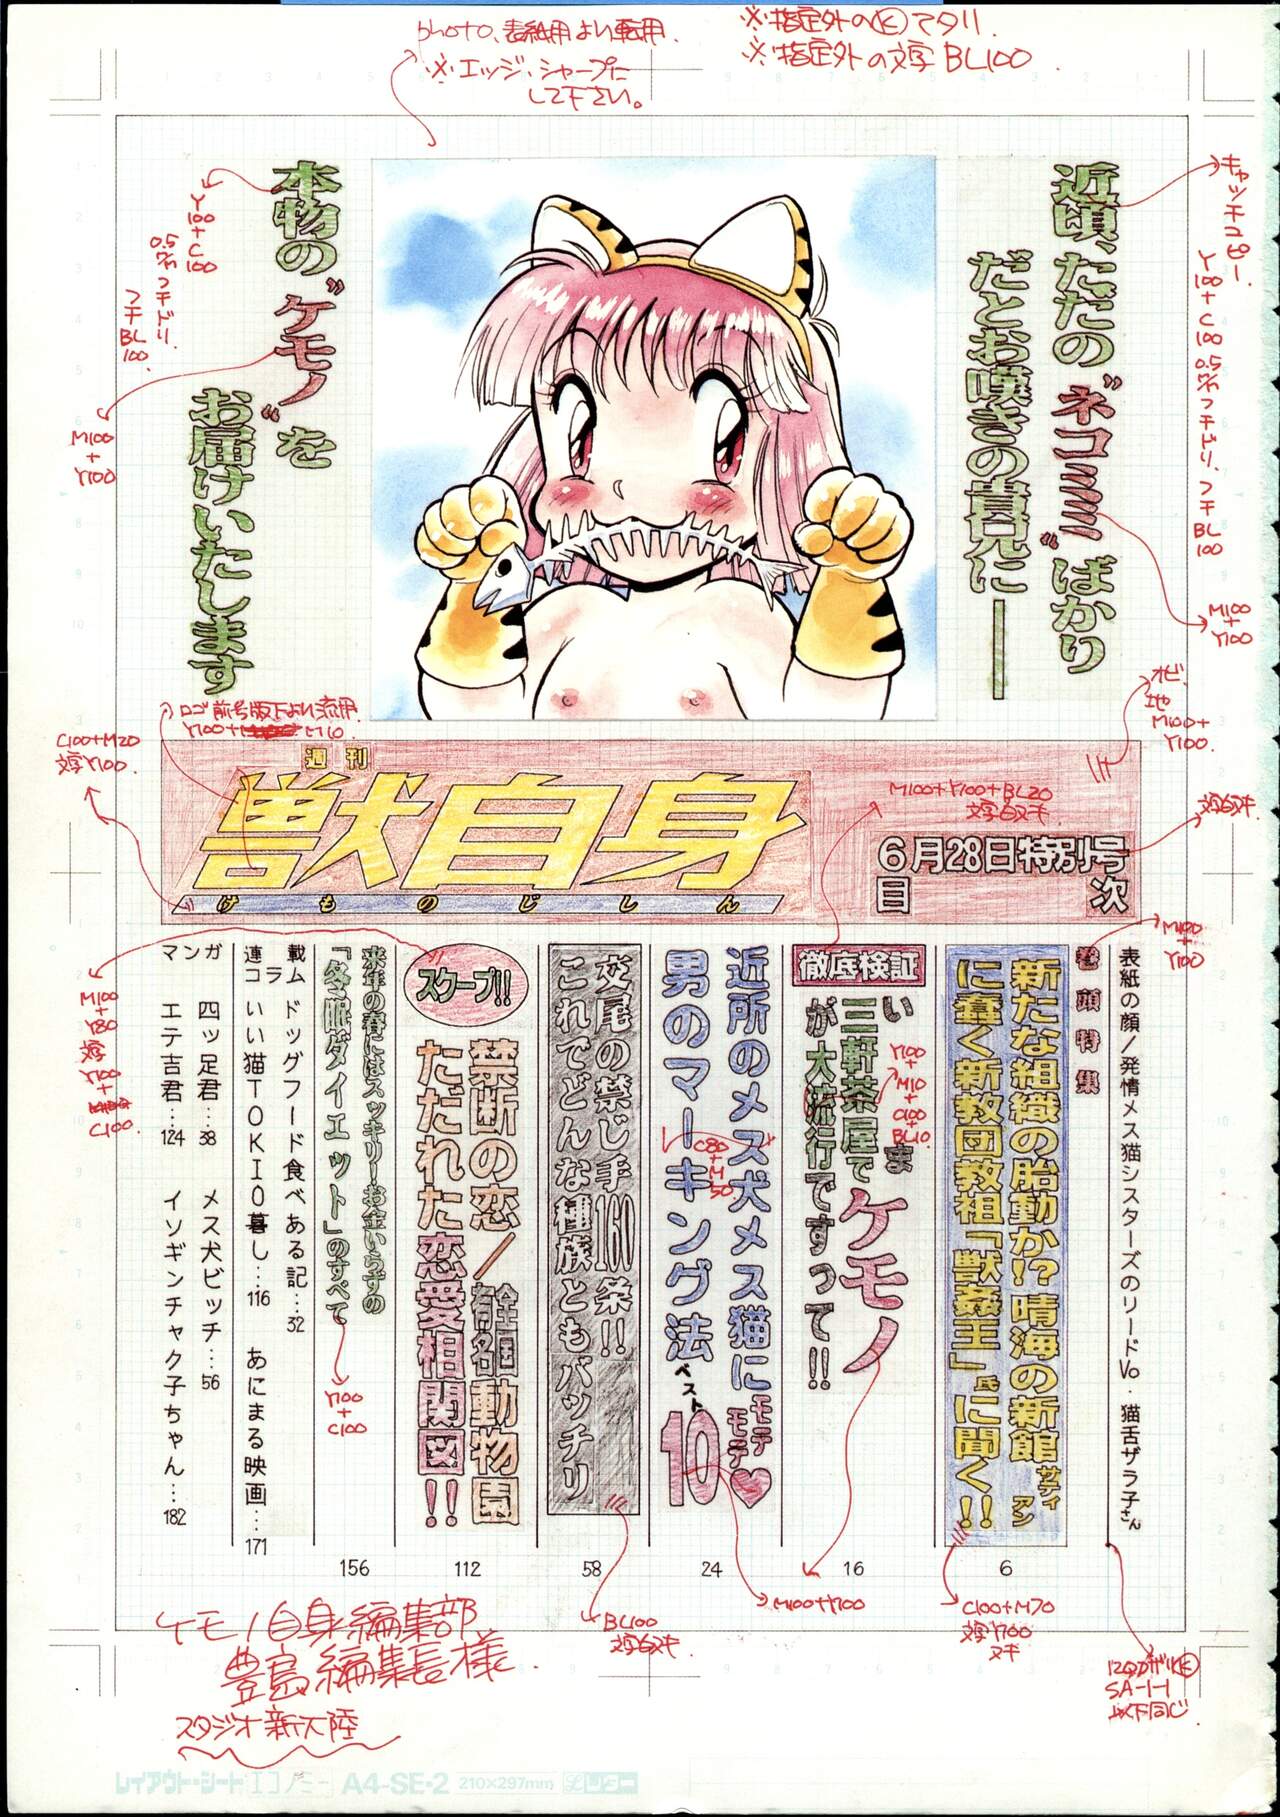 photo、表紙用より転用.
※エッジ・シャープに
して下さい。
※指定外の文字 BL100
近頃、ただの〝ネコミミ〟ばかり
だとお嘆きの貴兄に――
本物の〝ケモノ〟を
お届けいたします
キャッチコピー.
Y100+C100 0.5㍉フチドリ、フチBL100
M100+Y100
Y100+C100
0.5㍉フチドリ.
フチBL100.
M100+Y100
オビ.
地
M100+Y100.
ロゴ前号版下より流用.
C100+M20
文字Y100.
M100+Y100+BL20
文字白ヌキ
文字白ヌキ
週刊
獣自身
けものじしん
6月28日特別号
目次
M100+Y100
表紙の顔/発情メス猫シスターズのリードVo.猫舌ザラ子さん
巻頭特集
新たな組織の胎動か!?晴海の新館サティアン
に蠢く新教団教祖「獣姦王」氏に聞く!!
6
徹底検証
いま
三軒茶屋でケモノ
が大流行ですって!!
16
Y100+M10+C100+BL10.
近所のメス犬メス猫にモテモテ♥
男のマーキング法ベスト10
24
C80+M50
交尾の禁じ手160条!!
これでどんな種族ともバッチリ
58
スクープ!!
禁断の恋/全国有名動物園
ただれた恋愛相関図!!
112
来年の春にはスッキリ!お金いらずの
「冬眠ダイエット」のすべて
156
Y100+C100
連載コラム
ドッグフード食べある記…32
いい猫TOKIO暮し…116
あにまる映画…171
マンガ
四ッ足君…38
メス犬ビッチ…56
エテ吉君…124
イソギンチャク子ちゃん…182
M100+Y80
文字
Y100+C100.
BL100
文字白ヌキ
M100+Y100
C100+M70
文字Y100
ヌキ
SA-1-1
以下同じ
ケモノ自身編集部
豊島編集長様.
スタジオ新大陸
レイアウト・シート エコノミー A4-SE・2 210×297mm レトラー